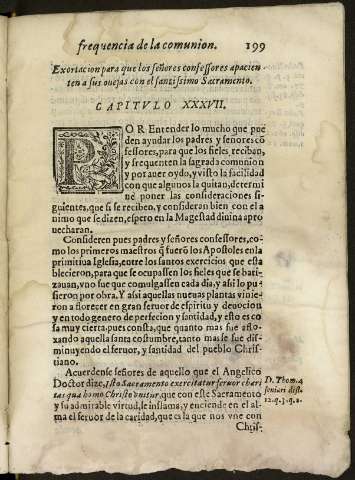 frequencia de la comunion. 199
Exortacion para que los señores confessores apacien-
ten a sus ouejas con el santissimo Sacramento.
CAPITVLO XXXVII.
POR Entender lo mucho que pue
den ayudar los padres y señores cõ
fessores, para que los fieles, reciban,
y frequenten la sagrada comunion
y por auer oydo, y visto la facilidad
con que algunos la quitan, determi
ne poner las consideraciones si-
guientes, que si se reciben, y consideran bien con el a
nimo que se dizen, espero en la Magestad diuina apro
uecharan.
Consideren pues padres y señores confessores, co-
mo los primeros maestros q̃ fuerõ los Apostoles en la
primitiua Iglesia, entre los santos exercicios que esta
blecieron, para que se ocupassen los fieles que se bati-
zauan, vno fue que comulgassen cada dia, y assi lo pu
sieron por obra. Y assi aquellas nueuas plantas vinie-
ron a florecer en gran feruor de espiritu y deuocion
y en todo genero de perfecion y santidad, y esto es co
sa muy cierta, pues consta, que quanto mas fue aflo-
xando aquella santa costumbre, tanto mas se fue dis-
minuyendo el feruor, y santidad del pueblo Chris-
tiano.
Acuerdense señores de aquello que el Angelico
Doctor dize, Isto Sacramento exercitatur feruor chari
tas qua homo Christo vnitur, que con este Sacramento
y su admirable virtud, se inflama, y enciende en el al-
ma el feruor de la caridad, que es la que nos vne con
D. Thom. 4
12. q. 3. q. 2.
Chris-